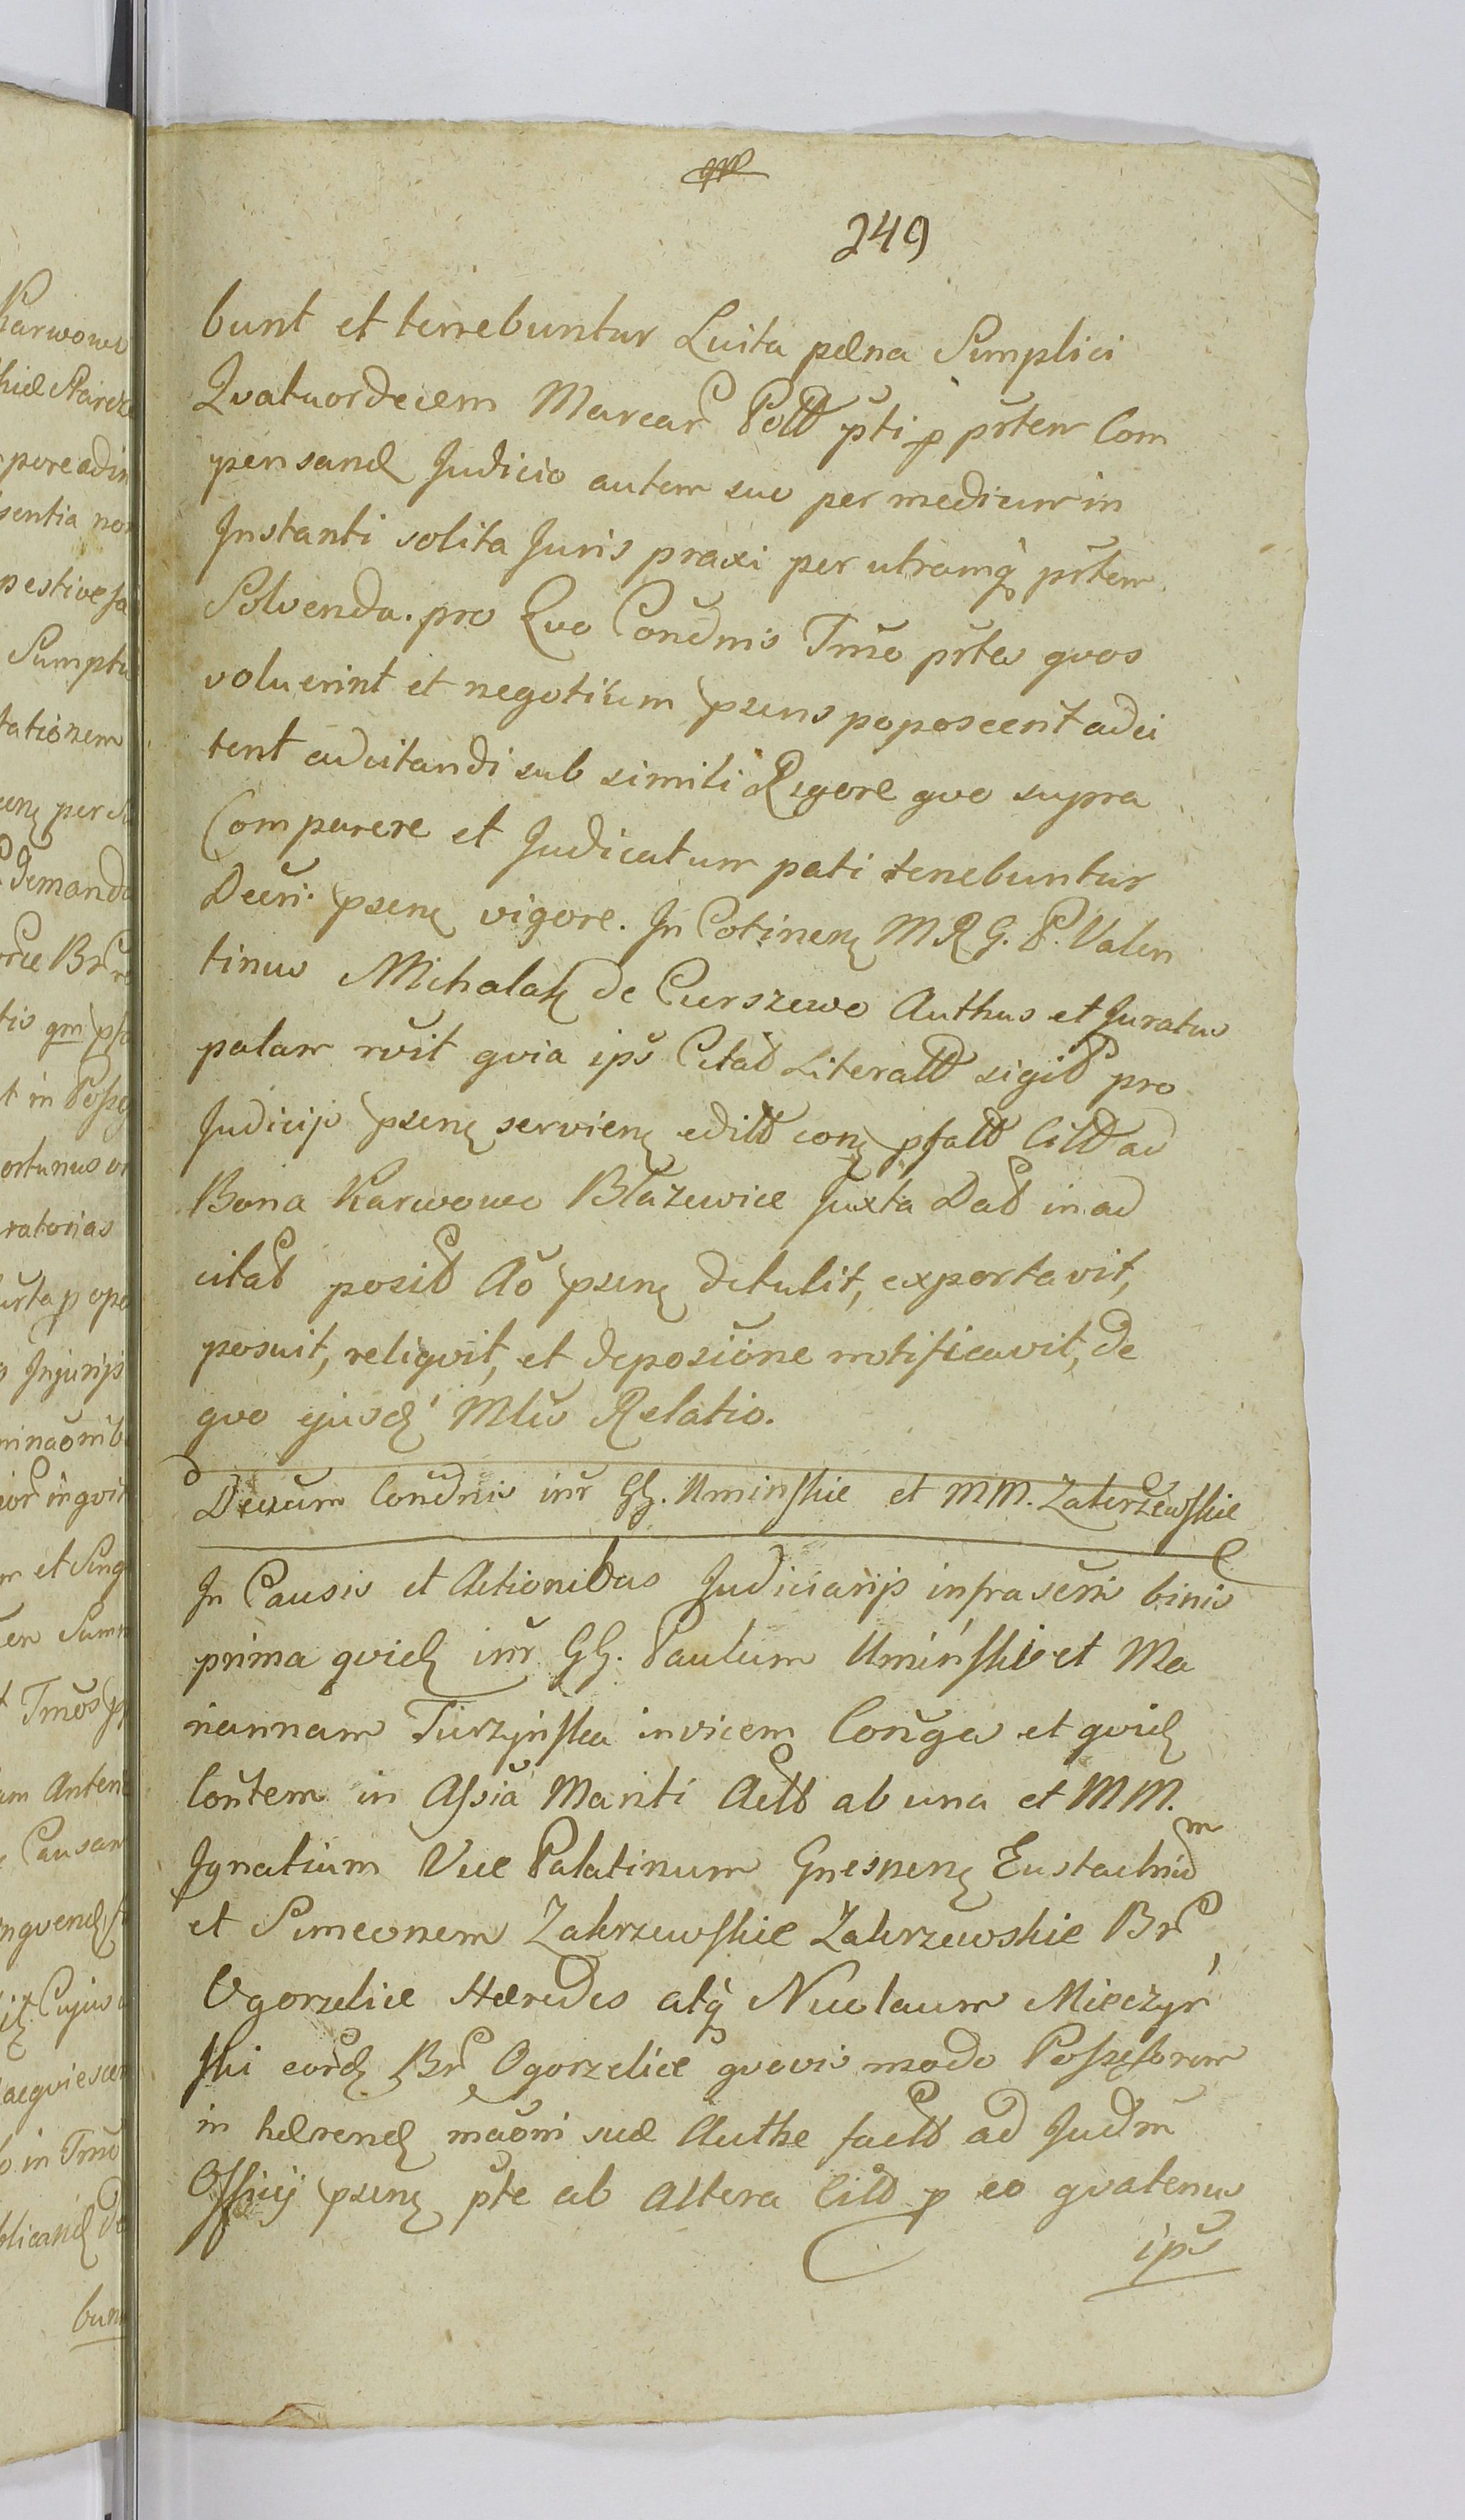 249
bunt et tenebuntur Luita pæna Simplici
Qvatuordecem Marcar Polł pti p prtem Com
pensand Judicio autem suo per medium in
Instanti solita Juris praxi per utramq prtem
Solvenda. pro Qvo Condnis Tmo prtes qvos
voluerint et negotium psens poposcerit adci
tent adcitandi sub simili Rigore qvo supra
Comparere et Judicatum pati tenebuntur
Decri psen vigore. In Cotinen MRG. P. Valen
tinus Michalak de Cierszewo Authus et Juratus
palam rvit qvia ips Citał Literałł sigił pro
Judicijs psen servien edił con pfałł Citł ad
Bona Karwowo Błazewice Juxta Dał in ad
citał posił Ao psen detulit, exportavit,
posuit, reliqvit, et deposiöne notificavit, de
qvo ejusd Mlis Relatio.
Decrum Condnis intr GG. Uminskie et MM. Zakrzewskie
In Causis et Actionibus Judiciarijs infrascri binis
prima qvid intr GG. Paulum Umiński et Ma
riannam Turzyńska invicem Conges et qvid
Contem in Assia Mariti Actł ab una et MM.
Ignatium Vice Palatinum Gnesnen Eustachium
et Simeonem Zakrzewskie Zakrzewskie Br
Ogorzelice Hæredes atq Nicolaum Mieczyń
ski eord Br Ogorzelice qvovis modo Possessorem
in hærend maöni suæ Authe factł ad Judm
Officij psen pte ab altera Citł p eo qvatenus
ips